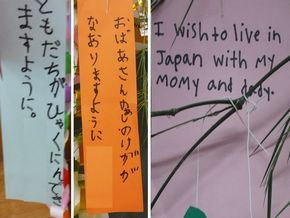 ともだちがひゃくにんでき
ますように。
おばあさんのあしのけがが
なおりますように
I wish to live in
Japan with my
momy and dady.